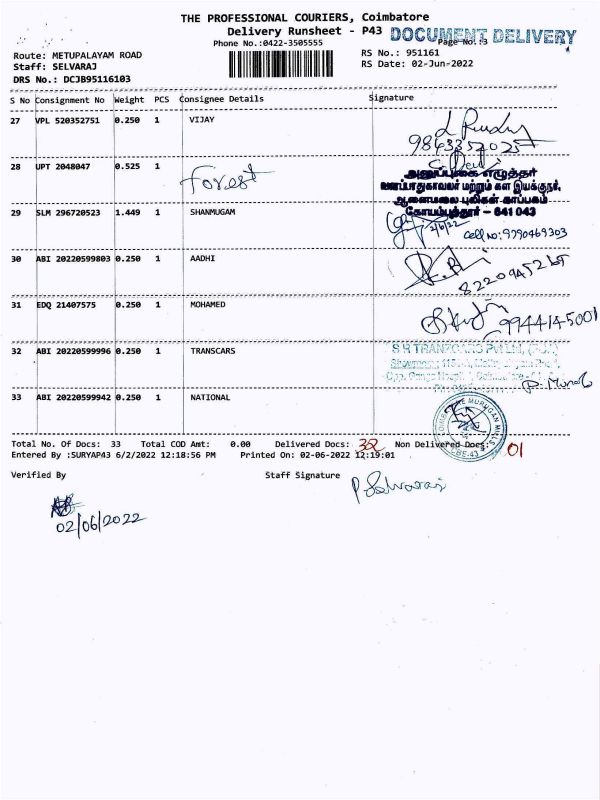 THE PROFESSIONAL COURIERS, Coimbatore
Delivery Runsheet - P43
DOCUMENT DELIVERY
Phone No.:0422-3505555
Page No.:3
Route: METUPALAYAM ROAD
RS No.: 951161
Staff: SELVARAJ
RS Date: 02-Jun-2022
DRS No.: DCJB95116103
S No Consignment No Weight PCS Consignee Details Signature
27 VPL 520352751 0.250 1 VIJAY
28 UPT 2048047 0.525 1 Forest
அலுவலக எழுத்தர்
வனப்பாதுகாவலர் மற்றும் கள இயக்குநர்,
ஆனைமலை புலிகள் காப்பகம்
கோயம்புத்தூர் - 641 043
29 SLM 296720523 1.449 1 SHANMUGAM
2/6/22
Cell No: 9790469303
30 ABI 20220599803 0.250 1 AADHI
31 EDQ 21407575 0.250 1 MOHAMED
9944145001
32 ABI 20220599996 0.250 1 TRANSCARS
33 ABI 20220599942 0.250 1 NATIONAL
Total No. Of Docs: 33 Total COD Amt: 0.00 Delivered Docs: 32 Non Delivered Docs: 01
Entered By :SURYAP43 6/2/2022 12:18:56 PM Printed On: 02-06-2022 12:19:01
Verified By Staff Signature
P. Selvaraj
02/06/2022